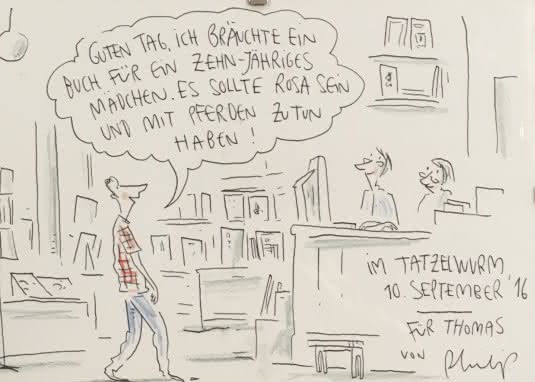 GUTEN TAG, ICH BRÄUCHTE EIN
BUCH FÜR EIN ZEHN-JÄHRIGES
MÄDCHEN. ES SOLLTE ROSA SEIN
UND MIT PFERDEN ZU TUN
HABEN!
IM TATZELWURM
10. SEPTEMBER '16
FÜR THOMAS
VON